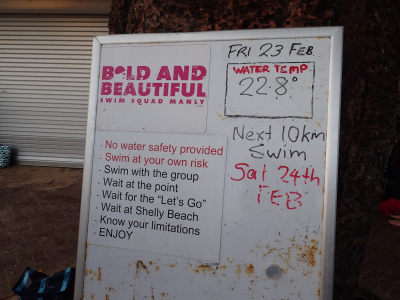 BOLD AND
BEAUTIFUL
SWIM SQUAD MANLY
- No water safety provided
- Swim at your own risk
- Swim with the group
- Wait at the point
- Wait for the "Let's Go"
- Wait at Shelly Beach
- Know your limitations
- ENJOY
FRI 23 FEB
WATER TEMP.
22.8°
Next 10km
Swim
Sat 24th
FEB